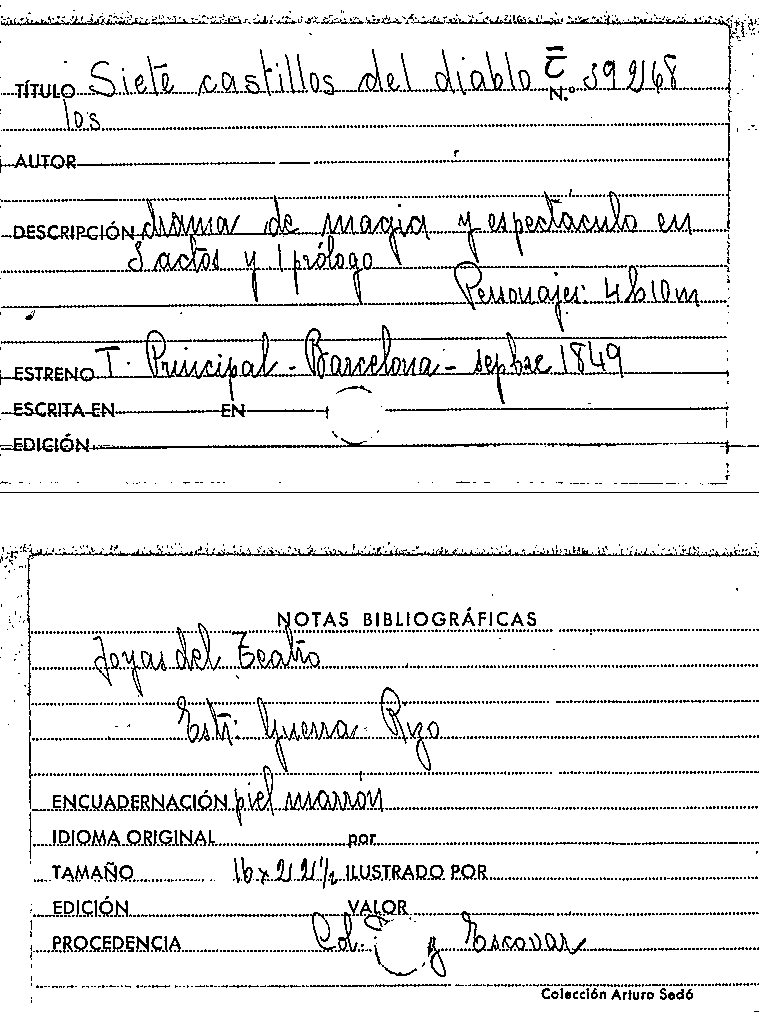 TÍTULO Siete castillos del diablo C̄ N.º 39268
los
AUTOR
DESCRIPCIÓN drama de magia y espectáculo en
actos y 1 prólogo
Personajes: 4 h 10 m
ESTRENO T. Principal - Barcelona - sepbre 1849
ESCRITA EN EN
EDICIÓN
NOTAS BIBLIOGRÁFICAS
Joyas del Teatro
Estr: Guerra Rizo
ENCUADERNACIÓN piel marrón
IDIOMA ORIGINAL por
TAMAÑO 16 x 22 1/2 ILUSTRADO POR
EDICIÓN VALOR
PROCEDENCIA Col. y Escovar
Colección Arturo Sedó